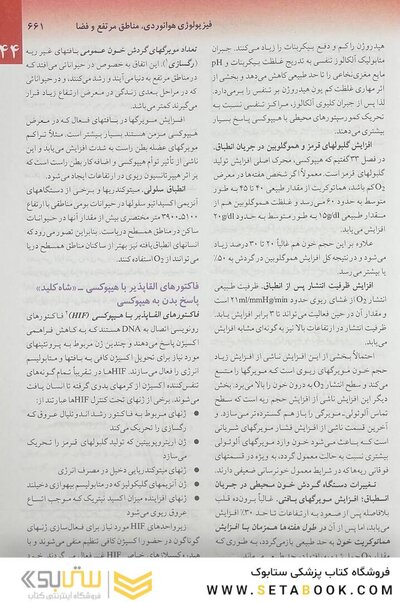 فیزیولوژی هوانوردی، مناطق مرتفع و فضا
۶۶۱
۴۴
هیدروژن را کم و دفع بیکربنات را زیاد می‌کنند. جبران
متابولیک آلکالوز تنفسی به تدریج غلظت بیکربنات و pH
مایع مغزی‌نخاعی را تا حد طبیعی کاهش می‌دهد و بخشی از
اثر مهاری غلظت کم یون هیدروژن بر تنفس را برمی‌دارد.
لذا پس از جبران کلیوی آلکالوز، مراکز تنفسی نسبت به
تحریک کمورسپتورهای محیطی با هیپوکسی پاسخ بسیار
بیشتری می‌دهند.
افزایش گلبولهای قرمز و هموگلوبین در جریان انطباق.
در فصل ۳۳ گفتیم که هیپوکسی، محرک اصلی افزایش تولید
گلبولهای قرمز است. معمولاً اگر شخص هفته‌ها در معرض
O₂ کم باشد، هماتوکریت از مقدار طبیعی ۴۰ تا ۴۵ به طور
متوسط به حدود ۶۰ می‌رسد و غلظت هموگلوبین هم از
مقدار طبیعی ۱۵g/dl به طور متوسط به حدود ۲۰g/dl
افزایش می‌یابد.
علاوه بر این حجم خون هم غالباً ۲۰ تا ۳۰ درصد زیاد
می‌شود و در نتیجه کل افزایش هموگلوبین در گردش به ۵۰٪
یا بیشتر می‌رسد.
افزایش ظرفیت انتشار پس از انطباق. ظرفیت طبیعی
انتشار O₂ از غشای ریوی حدود ۲۱ml/mmHg/min است
و مقدار آن در حین فعالیت می‌تواند تا ۳ برابر افزایش یابد.
ظرفیت انتشار در ارتفاعات بالا نیز به گونه‌ای مشابه افزایش
می‌یابد.
احتمالاً بخشی از این افزایش ناشی از افزایش زیاد
حجم خون مویرگهای ریوی است که مویرگها را متسع
می‌کند و سطح انتشار O₂ به درون خون را بالا می‌برد. بخش
دیگر این افزایش ناشی از افزایش حجم ریه است که سطح
تماس آلوئولی-مویرگی را باز هم گسترده‌تر می‌سازد. و
آخرین قسمت ناشی از افزایش فشار مویرگهای شریانی
است که باعث می‌شود خون وارد مویرگهای آلوئولی
بیشتری نسبت به حالت معمول گردد، به ویژه در قسمتهای
فوقانی ریه‌ها که در شرایط معمول خونرسانی ضعیفی دارند.
تغییرات دستگاه گردش خون محیطی در جریان
انطباق: افزایش مویرگهای بافتی. غالباً برون‌ده قلب
بلافاصله پس از صعود به ارتفاعات تا حد ۳۰٪ افزایش
می‌یابد، اما پس از آن در طول هفته‌ها همزمان با افزایش
هماتوکریت خون به حد طبیعی بازمی‌گردد، به طوری که
تعداد مویرگهای گردش خون عمومی بافتهای غیر ریه
(رگسازی¹). این انطباق به خصوص در حیواناتی می‌افتد که
در مناطق مرتفع به دنیا می‌آیند و رشد می‌کنند، و در حیواناتی
که در مراحل بعدی زندگی در معرض ارتفاع زیاد قرار
می‌گیرند کمتر می‌باشد.
افزایش مویرگها در بافتهای فعال که در معرض
هیپوکسی مزمن هستند بسیار بیشتر است. مثلاً تراکم
مویرگهای عضله بطن راست به شدت افزایش می‌یابد و این
ناشی از تأثیر توأم هیپوکسی و اضافه کار بطن راست است که
بر اثر هیپرتانسیون ریوی در ارتفاعات ایجاد می‌شود.
انطباق سلولی. میتوکندریها و برخی از دستگاههای
آنزیمی اکسیداتیو سلولها در حیوانات بومی مناطقی با ارتفاع
۵۱۰۰-۳۹۰۰ متر مختصری بیش از مقدار آنها در حیوانات
ساکن در مناطق هم‌سطح دریاست. بنابراین تصور می‌رود که
انسانهای انطباق‌یافته نیز بهتر از ساکنان مناطق هم‌سطح دریا
می‌توانند از O₂ استفاده کنند.
فاکتورهای القاپذیر با هیپوکسی ــ «شاه‌کلید»
پاسخ بدن به هیپوکسی
فاکتورهای القاپذیر با هیپوکسی (HIF)² فاکتورهای
رونویسی اتصال به DNA هستند که به کاهش فراهمی
اکسیژن پاسخ می‌دهند و چندین ژن مربوط به پروتئینهای
مورد نیاز برای تحویل اکسیژن کافی به بافتها و متابولیسم
انرژی را فعال می‌سازند. HIFها در تقریباً تمام گونه‌های
تنفس‌کننده اکسیژن از کرمهای بدوی گرفته تا انسان یافت
می‌شوند. برخی از ژنهای تحت کنترل HIFها عبارتند از:
● ژنهای مربوط به فاکتور رشد اندوتلیال عروق که
رگسازی را تحریک می‌کند
● ژن اریتروپویتین که تولید گلبولهای قرمز را تحریک
می‌سازد
● ژنهای میتوکندریایی دخیل در مصرف انرژی
● ژن آنزیمهای گلیکولیز که در متابولیسم بیهوازی دخیلند
● ژنهای افزاینده میزان اکسید نیتریک که موجب اتساع
عروق ریوی می‌شود
زیر واحدهای HIF مورد نیاز برای فعال‌سازی ژنهای
گوناگون در حضور اکسیژن کافی تنظیم منفی می‌شوند و با
ستابوک
فروشگاه اینترنتی کتاب
فروشگاه کتاب پزشکی ستابوک
www.SETABOOK.com